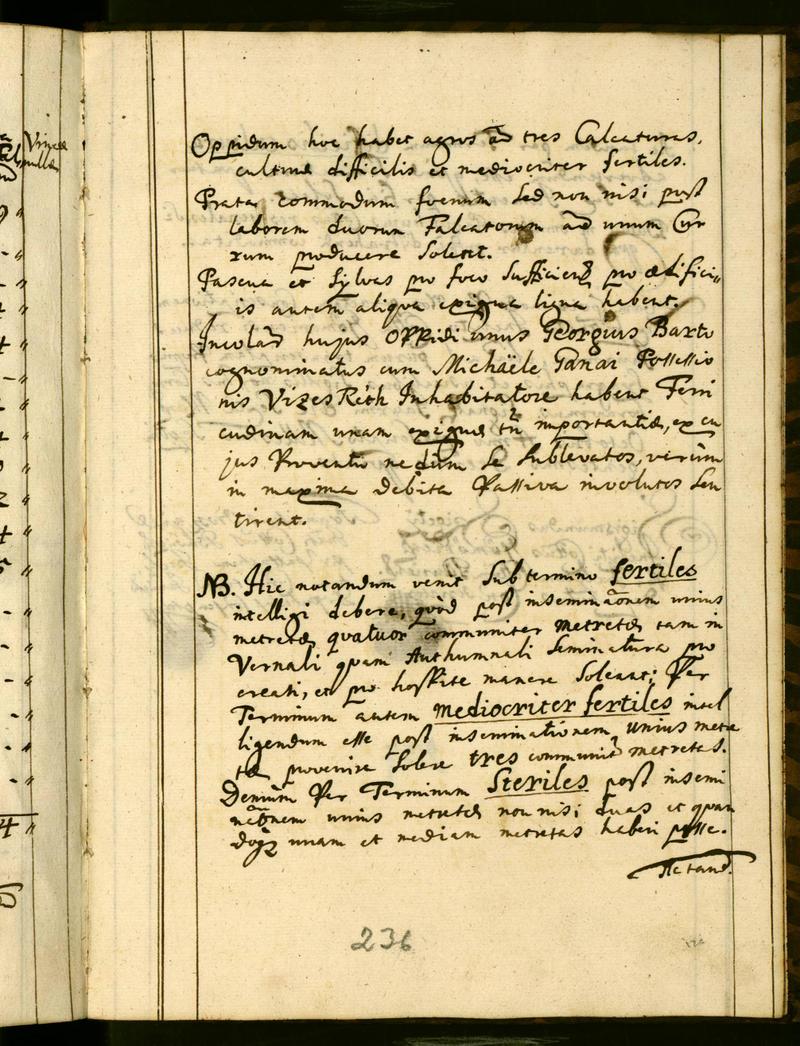 Vineæ
nullæ
Oppidum hoc habet agros ad tres Calcaturas,
culturæ difficilis et mediocriter fertiles.
Prata commodum foenum sed non nisi post
laborem duorum Falcatorum ad unum Cur
rum producere solent.
Pascua et sylvas pro foco sufficien̄t pro ædifici„
is autem aliqua exigua ligna habent.
Incolarū hujus Oppidi unus Georgius Barto
cognominatus cum Michaële Tanai Possessio
nis Vizes Réth Inhabitatore habent Ferri
cudinam unam exiguæ tn̄ importantiæ, ex cu
jus Proventu nedum se sublevatos, verùm
in maxima debita Passiva involutos sen
tirent.
NB. Hic notandum venit sub termino fertiles
intelligi debere, quòd post inseminaōnem unius
metretæ quatuor communiter metretæ tam in
Vernali quam Authumnali seminatura pro
creari, et pro hospite manere soleant; Per
Terminum autem mediocriter fertiles intel
ligendum esse post inseminationem unius metre
tæ provenire solere tres communitr metretas.
Demùm Per Terminum Steriles post insemi
nāōnem unius metretæ non nisi duas et quan
doq̢ unam et mediam metretas haberi posse.
Actand.
236